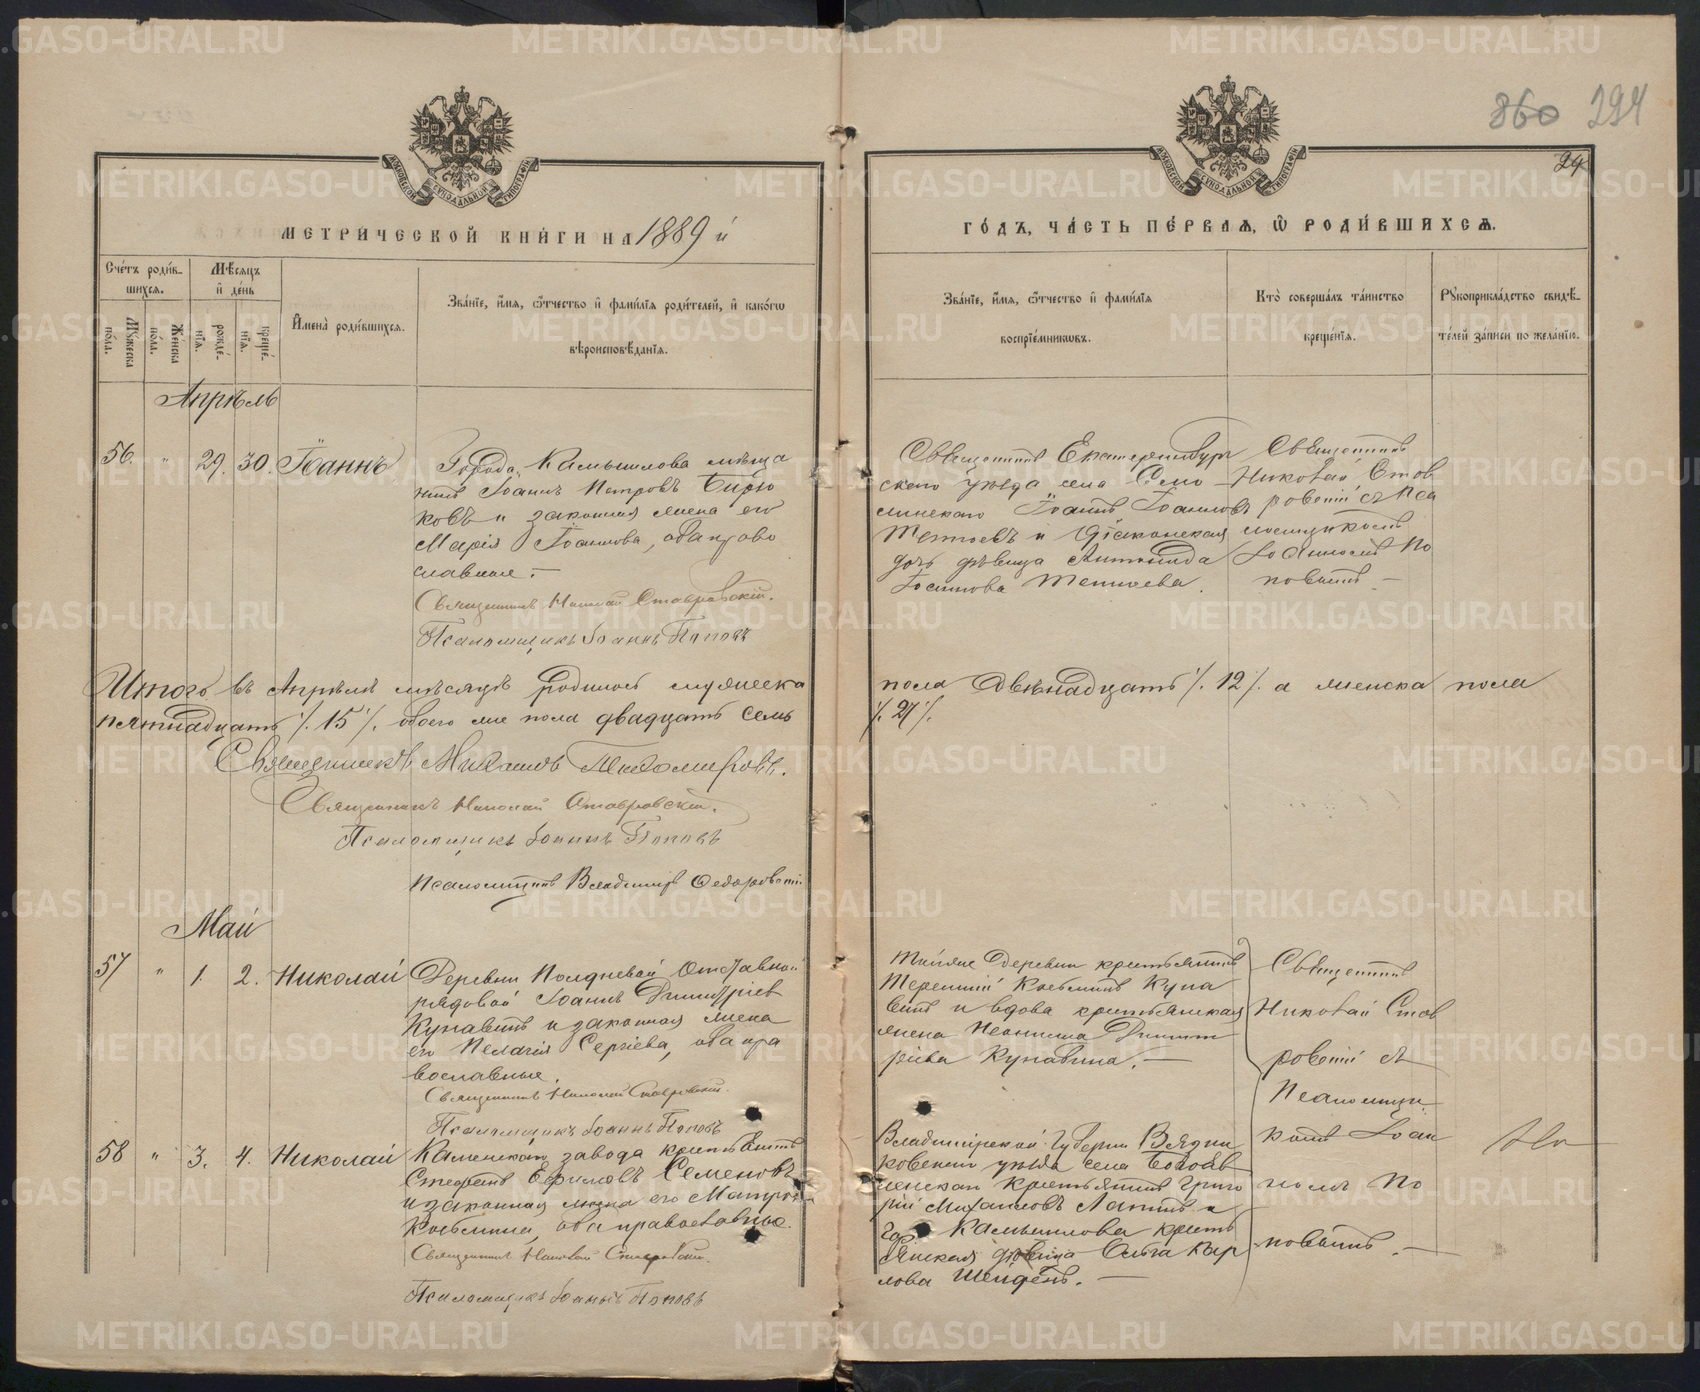 860 294
29
МЕТРИЧЕСКОЙ КНИГИ НА 1889 й
ГОДЪ, ЧАСТЬ ПЕРВАЯ, Ѡ РОДИВШИХСЯ.
Счетъ родив-
шихся.
Мужеска пола.
Женска пола.
Мѣсяцъ
и день
рожде-
нія.
креще-
нія.
Имена родившихся.
Званіе, имя, ѿтчество и фамилія родителей, и какогѡ
вѣроисповѣданія.
Званіе, имя, ѿтчество и фамилія
воспріемникѡвъ.
Кто совершалъ таинство
крещенія.
Рукоприкладство свидѣ-
телей записи по желанію.
Апрѣль
56. " 29. 30. Іоаннъ
Города Камышлова мѣща
нинъ Іоаннъ Петровъ Бирю
ковъ и законная жена его
Марія Іоаннова, оба право
славные. –
Священникъ Николай Ставровскій.
Псаломщикъ Іоаннъ Поповъ
Священникъ Екатеринбург
скаго уѣзда села
Іоаннъ Іоанновъ
и Діаконская
дочь дѣвица
Священникъ
Николай Став
ровскій съ Пса
ломщикомъ
Іоанномъ По
повымъ –
Итого въ Апрѣлѣ мѣсяцѣ родилось мужеска
пола двѣнадцать /. 12 /. а женска пола
пятнадцать /. 15 /. обоего же пола двадцать семь
/. 27 /.
Священникъ Михаилъ Тихомировъ.
Священникъ Николай Ставровскій.
Псаломщикъ Іоаннъ Поповъ
Псаломщикъ Владиміръ Ѳедоровскій
Май
57 " 1. 2. Николай
Деревни Полдневой Отставной
рядовой Іоаннъ Димитріевъ
Кунавинъ и законная жена
его Пелагія Сергіева, оба пра
вославные.
Священникъ Николай Ставровскій.
Псаломщикъ Іоаннъ Поповъ
Тойже деревни крестьянинъ
Терентій Козьминъ Куна
винъ и вдова крестьянская
жена Димит
ріева Кунавина. –
Священникъ
Николай Став
ровскій съ
Псаломщи
комъ Іоан
номъ По
повымъ. –
58 " 3. 4. Николай
Каменскаго завода крестьянинъ
Стефанъ Ефимовъ Семеновъ
и законная жена его Матрона
Козьмина, оба православные.
Священникъ Николай Ставровскій.
Псаломщикъ Іоаннъ Поповъ
Владимірской Губерніи Вязни
ковскаго уѣзда села
крестьянинъ Григо
рій Михаиловъ Лапинъ и
Камышлова кресть
янская дѣвица Ольга Кар
лова
METRIKI.GASO-URAL.RU